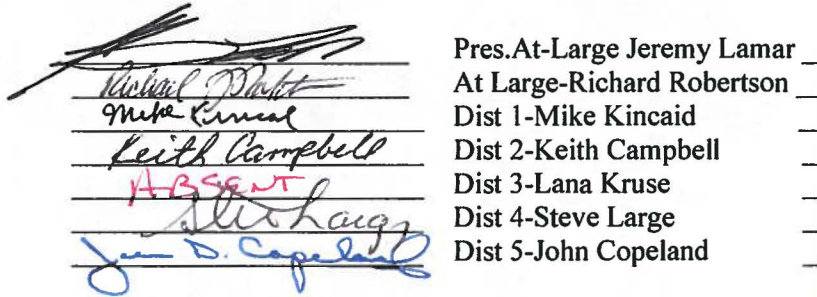 Pres.At-Large Jeremy Lamar
Richard At Large-Richard Robertson
Mike Kincaid Dist 1-Mike Kincaid
Keith Campbell Dist 2-Keith Campbell
ABSENT Dist 3-Lana Kruse
Steve Large Dist 4-Steve Large
John D. Copeland Dist 5-John Copeland